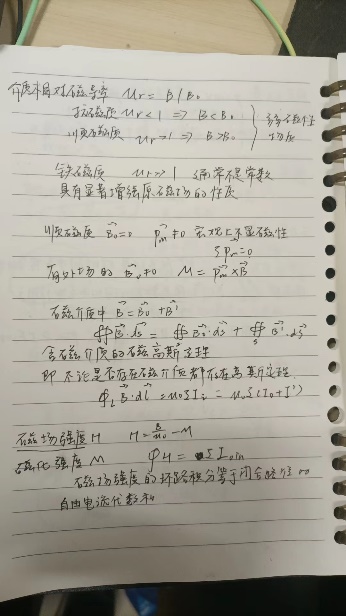 介质相对磁导率 μr = B / B₀
抗磁质 μr < 1 => B < B₀
顺磁质 μr > 1 => B > B₀
铁磁质 μr >> 1 通常不是常数
具有显著增强原磁场的性质
顺磁质 B₀ = 0 Pm ≠ 0 宏观上不显磁性
ΣPm = 0
有外场时 B₀ ≠ 0 M = Pm × B
磁介质中 B = B₀ + B'
∯B·ds = ∯B₀·ds + ∯s B'·ds
含磁介质的磁高斯定理
即不论是否存在磁介质都存在高斯定理
∮L B·dl = μ₀ΣIi = μ₀Σ(I₀+I')
磁场强度 H H = B/μ₀ - M
磁化强度 M ∮H = ΣI₀in
磁场强度的环路积分等于闭合路径内
自由电流代数和